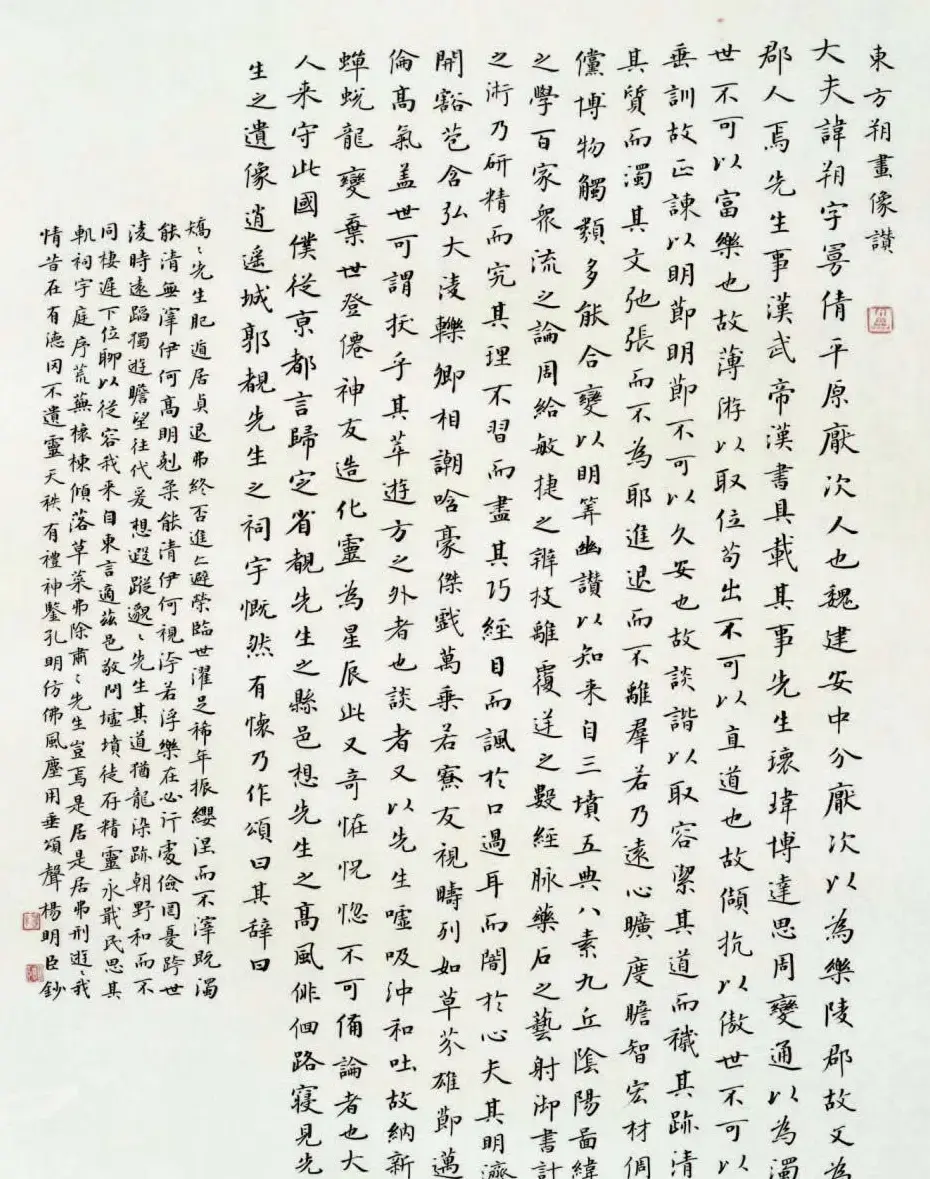 東方朔畫像讃
大夫諱朔字曼倩平原厭次人也魏建安中分厭次以為樂陵郡故又為
郡人焉先生事漢武帝漢書具載其事先生瓌瑋博達思周變通以為濁
世不可以富樂也故薄游以取位苟出不可以直道也故傾抗以傲世不可以
垂訓故正諫以明節明節不可以久安也故談諧以取容潔其道而穢其跡清
其質而濁其文弛張而不為耶進退而不離羣若乃遠心曠度贍智宏材倜
儻博物觸類多能合變以明筭幽讃以知来自三墳五典八素九丘陰陽圖緯
之學百家衆流之論周給敏捷之辨枝離覆逆之數經脉藥石之藝射御書計
之術乃研精而究其理不習而盡其巧經目而諷於口過耳而闇於心夫其明濟
開豁苞含弘大淩轢卿相謿哈豪傑戲萬乗若寮友視疇列如草芥雄節邁
倫高氣盖世可謂拔乎其萃遊方之外者也談者又以先生噓吸沖和吐故納新
蟬蛻龍變棄世登僊神友造化靈為星辰此又竒恠恍惚不可備論者也大
人来守此國僕從京都言歸定省覩先生之縣邑想先生之高風徘徊路寢見先
生之遺像逍遥城郭覩先生之祠宇慨然有懷乃作頌曰其辭曰
矯〻先生肥遁居貞退弗終否進亦避榮臨世濯足稀年振纓涅而不滓既濁
能清無滓伊何高明剋柔能清伊何視汙若浮樂在必行處儉罔憂跨世
淩時遠蹈獨遊瞻望往代爰想遐蹤邈〻先生其道猶龍染跡朝野和而不
同棲遲下位聊以從容我来自東言適兹邑敬問墟墳徒存精靈永戢民思其
軌祠宇庭序荒蕪榱棟傾落草莱弗除肅〻先生豈焉是居是居弗刑遊〻我
情昔在有德罔不遺靈天秩有禮神鑒孔明仿佛風塵用垂頌聲楊明臣鈔